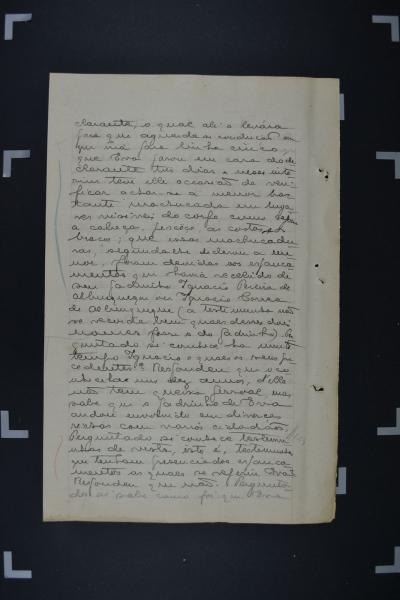 clarante, o qual ali a levára
para que aguardasse conducção em
que iria para linha cinco,
que Eva parou em casa do de-
clarante tres dias e nesse inte-
rim teve elle occasião de veri-
ficar achar-se a menor bas-
tante machucada em luga-
res visiveis do corpo como sejam
a cabeça, pescoço, as costas e os
braços; que essas machucadu-
ras, segundo lhe declarou a me-
nor, foram devidas aos espanca-
mentos que havia recebido de
seu padrinho Ignacio Pereira de
Albuquerque ou Ignacio Correa
de Albuquerque (a testemunha não
se recorda bem quaes desses dois
nomes é o do padrinho). Per-
guntado si conhece ha muito
tempo Ignacio e quaes os seus pre-
cedentes? Respondeu que o co-
nhece ha uns dez annos, d'elle
não tem queixa pessoal, mas
sabe que o padrinho de Eva
andou envolvido em diversas
rixas com varios cidadãos.
Perguntado si conhece testemu-
nhas de vista, isto é, testemunhas
que tenham presenciado os espanca-
mentos aos quaes se referiu Eva?
Respondeu que não. Pergunta-
do si sabe como foi que Eva